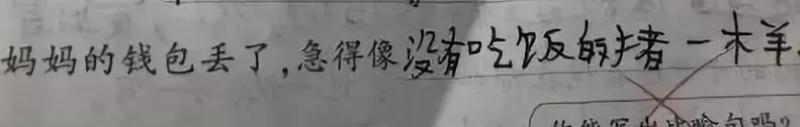 妈妈的钱包丢了,急得像没有吃饭的猪者一木羊.
你能写出比喻句吗?